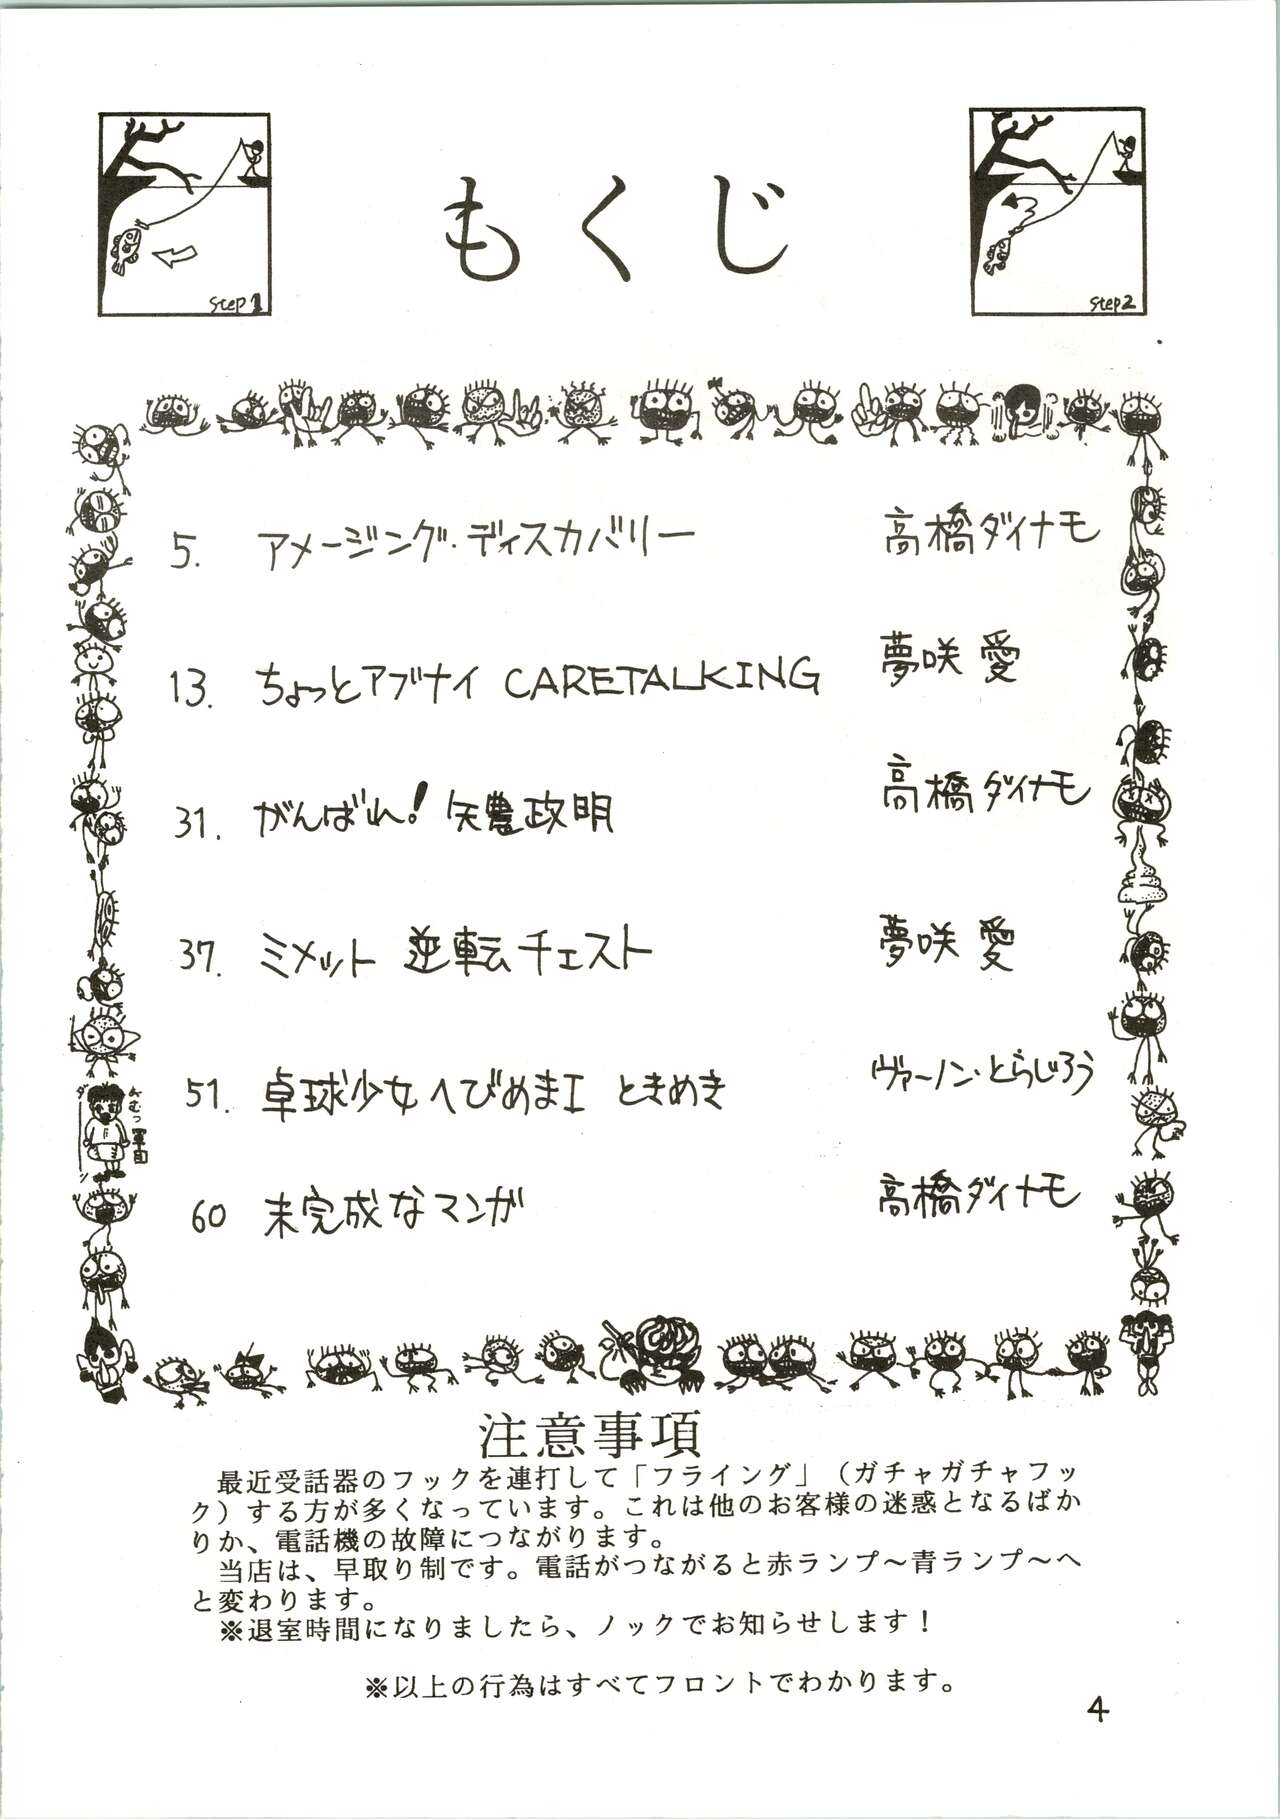 もくじ
Step1
Step2
5. アメージング・ディスカバリー 高橋ダイナモ
13. ちょっとアブナイ CARETALKING 夢咲 愛
31. がんばれ! 矢豊政明 高橋ダイナモ
37. ミメット 逆転チェスト 夢咲 愛
51. 卓球少女へびめまI ときめき ヴァーノン・とらじろう
60 未完成なマンガ 高橋ダイナモ
おむつ軍団
注意事項
最近受話器のフックを連打して「フライング」（ガチャガチャフッ
ク）する方が多くなっています。これは他のお客様の迷惑となるばか
りか、電話機の故障につながります。
当店は、早取り制です。電話がつながると赤ランプ～青ランプ～へ
と変わります。
※退室時間になりましたら、ノックでお知らせします！
※以上の行為はすべてフロントでわかります。
4